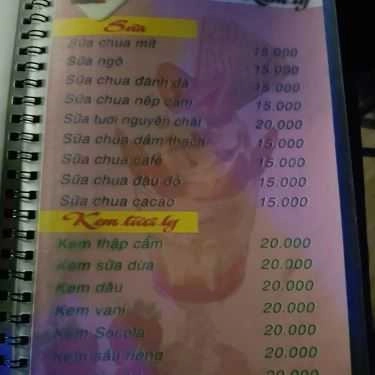 Sữa
Sữa chua mít 15.000
Sữa ngô 15.000
Sữa chua đánh đá 15.000
Sữa chua nếp cẩm 15.000
Sữa tươi nguyên chất 20.000
Sữa chua dầm thạch 15.000
Sữa chua café 15.000
Sữa chua đậu đỏ 15.000
Sữa chua cacao 15.000
Kem tươi ly
Kem thập cẩm 20.000
Kem sữa dừa 20.000
Kem dâu 20.000
Kem vani 20.000
Kem Socola 20.000
Kem sầu riêng 20.000
20.000